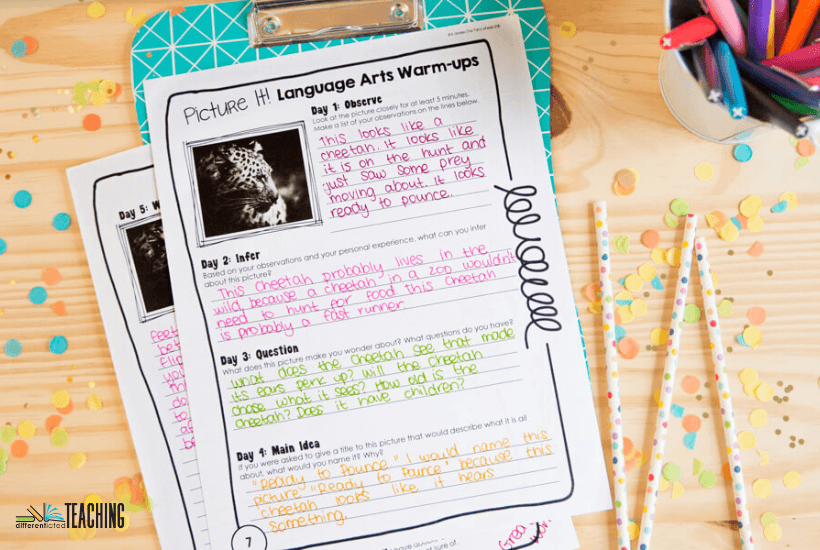 Picture It! Language Arts Warm-ups
Day 1: Observe
Look at the picture closely for at least 5 minutes.
Make a list of your observations on the lines below.
This looks like a
cheetah. It looks like
it is on the hunt and
just saw some prey
moving about. It looks
ready to pounce.
Day 2: Infer
Based on your observations and your personal experience, what can you infer
about this picture?
This Cheetah probably lives in the
wild because a cheetah in a zoo wouldn't
need to hunt for food This cheetah
is probably a fast runner
Day 3: Question
What does this picture make you wonder about? What questions do you have?
what does the cheetah see that made
its ears perk up? Will the cheetah
chase what it sees? How old is the
cheetah? Does it have children?
Day 4: Main Idea
If you were asked to give a title to this picture that would describe what it is all
about, what would you name it? Why?
"Ready to Pounce" I would name this
picture "Ready to Pounce" because this
cheetah looks like it hears
something.
7
Day 5: W
differentiated TEACHING